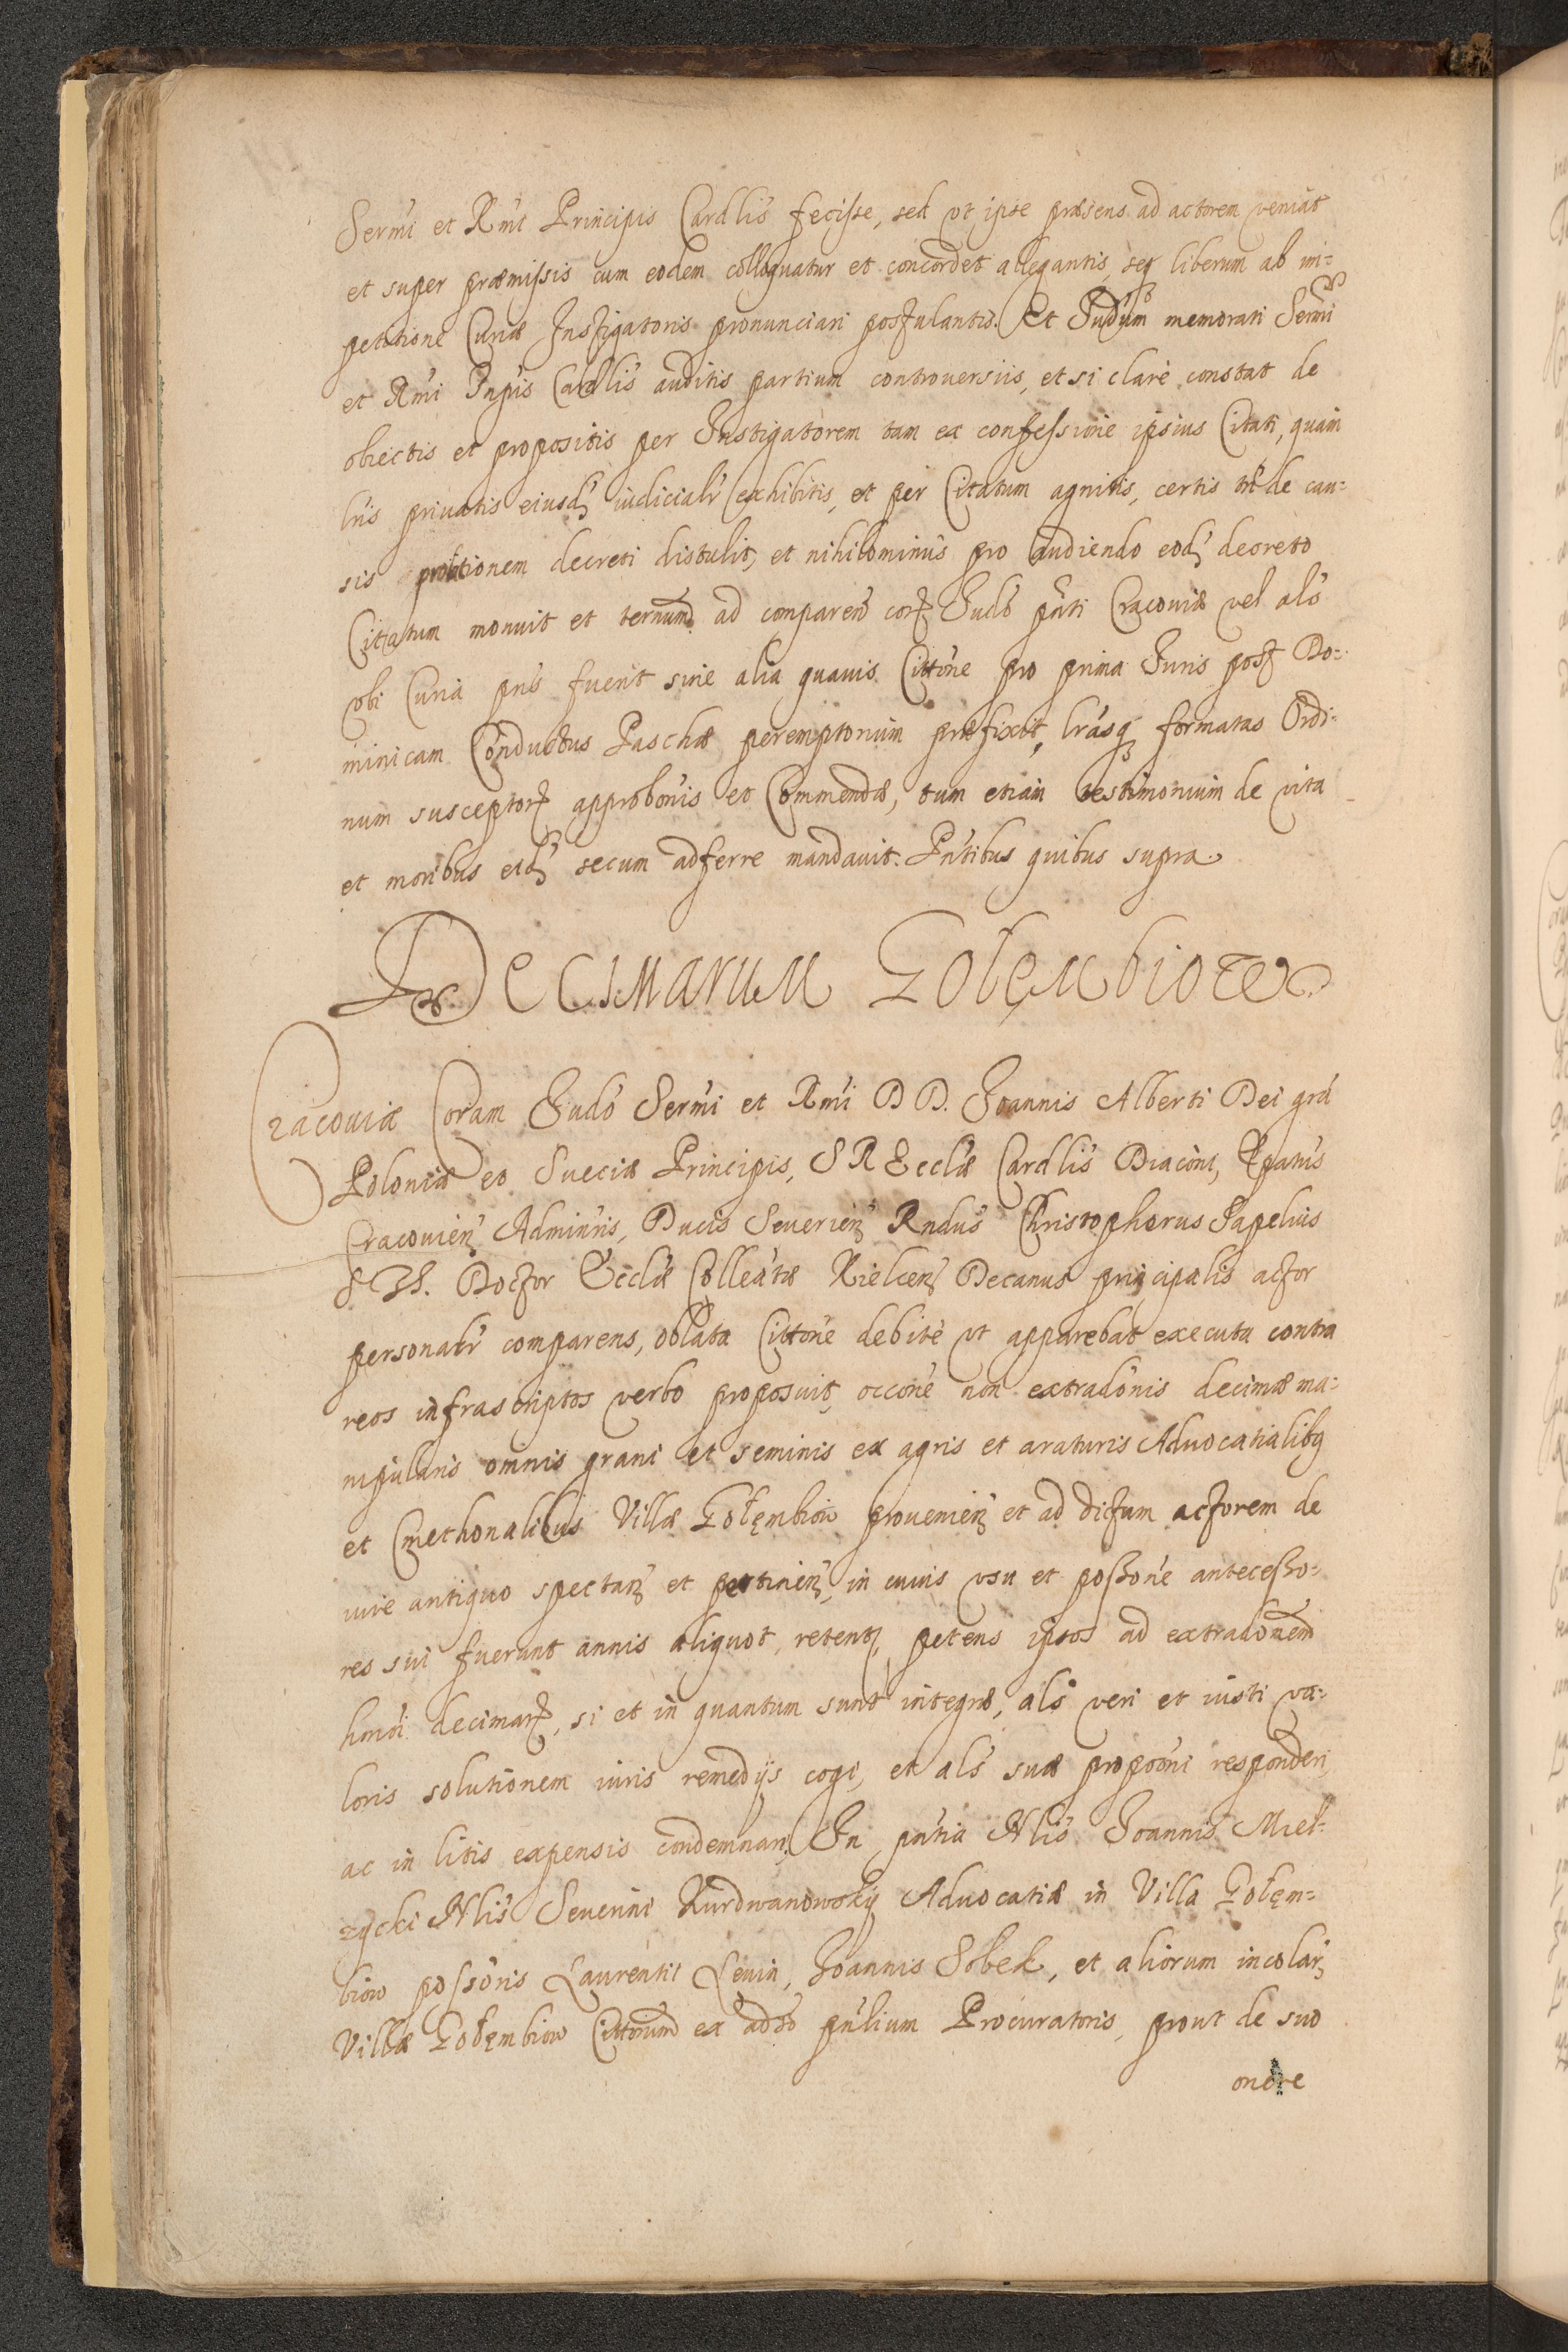 Sermi et Rmi Principis Cardlis fecisse, sed vt ipse præsens ad actorem veniat
et super præmissis cum eodem colloquatur et concordet allegantis, seq liberum ab im-
petitione Curiæ Instigatoris pronunciari postulantis. Et Judium memorati Sermi
et Rmi Pnpis Cardlis auditis partium controuersiis, etsi clarè constat de
obiectis et propositis per Instigatorem tam ex confessione ipsius Citati, quam
lris priuatis eiusdȝ iudicialr exhibitis, et per Citatum agnitis, certis tn de cau-
sis prolationem decreti distulit, et nihilominus pro audiendo eodȝ decreto
Citatum monuit et ternum ad comparend corȝ Judo pnti Cracouiæ vel als
vbi Curia pns fuerit sine alia quauis Cittone pro prima Juris post Do-
minicam Conductus Paschæ peremptorium præfixit, lrasqȝ formatas Ordi-
num susceptorȝ approbonis et Commendæ, tum etiam testimonium de vita
et moribus eidȝ secum adferre mandauit. Pntibus quibus supra.
Decimarum Gołembiow
Cracouiæ Coram Judo Sermi et Rmi D D. Joannis Alberti Dei gra
Poloniæ et Sueciæ Principis, S R Ecclæ Cardlis Diaconi, Epatus
Cracouienȝ Adminris, Ducis Seuerienȝ Rndus Christophorus Sapelius
S Th. Doctor Ecclæ Colleatæ Kielcenȝ Decanus principalis actor
personalr comparens, oblata Cittone debitè vt apparebat executa contra
reos infrascriptos verbo proposuit, occone non extradonis decimæ ma-
nipularis omnis grani et seminis ex agris et araturis Aduocatialibq
et Cmethonalibus Villæ Gołęmbiow prouenienȝ et ad dictum actorem de
iure antiquo spectanȝ et pertinenȝ, in cuius vsu et possone antecesso-
res sui fuerunt annis aliquot, retentȝ, petens ipsos ad extradonem
hmoi decimarȝ, si et in quantum sunt integræ, als veri et iusti va-
loris solutionem iuris remedijs cogi, et als suæ propoõni responderi,
ac in litis expensis condemnari. In pntia Nlis Joannis Miel-
zycki Nlis Seuerini Kurdwanowskij Aduocatiæ in Villa Gołęm-
biow possoris Laurentii Lenin, Joannis Sobek, et aliorum incolarȝ
Villæ Gołęmbiow Cittorum ex adso pnlium Procuratoris, prout de suo
onere